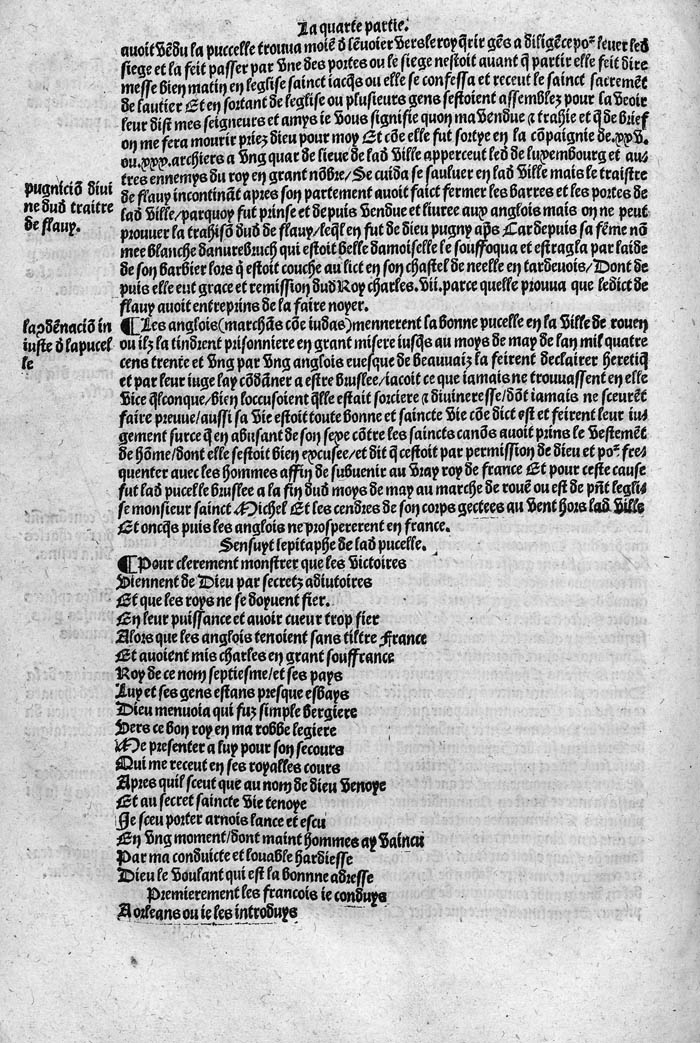 La quarte partie.
avoit vēdu la puccelle trouva moiē d lēvoier vers le roy q̄rir gēs a diligēce poꝰ lever led
siege et la feit passer par vne des portes ou le siege nestoit avant q̄ partir elle feit dire
messe bien matin en leglise sainct iacq̄s ou elle se confessa et receut le sainct sacremēt
de lautier Et en sortant de leglise ou plusieurs gens sestoient assemblez pour la veoir
leur dist mes seigneurs et amys ie vous signifie quon ma vendue ⁊ trahie et q̄ de brief
on me fera mourir priez dieu pour moy Et cōe elle fut sortye en la cōpaignie de.xxv.
ou.xxx.archiers a vng quar de lieue de lad ville apperceut led de luxembourg et au-
tres ennemys du roy en grant nōbre/Se cuida se saulver en lad ville mais le traistre
de flavy incontināt apres son partement avoit faict fermer les barres et les portes de
lad ville/parquoy fut prinse et depuis vendue et livree aux anglois mais on ne peut
prouver la trahisō dud de flavy/leq̄l en fut de dieu pugny ap̄s Car depuis sa fēme nō
mee blanche danurebruch qui estoit belle damoiselle le souffoqua et estragla par laide
de son barbier lors q̄ estoit couche au lict en son chastel de neelle en tardenois/Dont de
puis elle eut grace et remission dud Roy charles.vii.parce quelle prouva que ledict de
flavy avoit entreprins de la faire noyer.
pugniciō divi
ne dud traitre
de flavy.
¶Les anglois(marchās cōe iudas)mennerent la bonne pucelle en la ville de rouen
ou ilz la tindrent prisonniere en grant misere iusq̄s au moys de may de lan mil quatre
cens trente et vng par vng anglois evesque de beauvaiz la feirent declairer heretiq̄
et par leur iuge lay cōdāner a estre bruslee/iacoit ce que iamais ne trouvassent en elle
vice q̄lconque/bien loccusoient q̄lle estait sorciere ⁊ divineresse/dōt iamais ne sceurēt
faire preuve/aussi sa vie estoit toute bonne et saincte vie cōe dict est et feirent leur iu-
gement surce q̄ en abusant de son sexe cōtre les saincts canōs avoit prins le vestemēt
de hōme/dont elle sestoit bien excusee/et dit q̄ cestoit par permission de dieu et poꝰ fre-
quenter avec les hommes affin de subvenir au vray roy de france Et pour ceste cause
fut lad pucelle bruslee a la fin dud moys de may au marche de rouē ou est de pn̄t legli-
se monsieur sainct Michel Et les cendres de son corps gectees au vent hors lad ville
Et oncq̄s puis les anglois ne prospererent en france.
la ꝯdēnaciō in
iuste d la pucel
le
Sensuyt lepitaphe de lad pucelle.
¶Pour clerement monstrer que les victoires
Viennent de Dieu par secretz adiutoires
Et que les roys ne se doyvent fier.
En leur puissance et avoir cueur trop fier
Alors que les anglois tenoient sans tiltre France
Et avoient mis charles en grant souffrance
Roy de ce nom septiesme/et ses pays
Luy et ses gens estans presque esbays
Dieu menvoia qui fuz simple bergiere
Vers ce bon roy en ma robbe legiere
Me presenter a luy pour son secours
Qui me receut en ses royalles cours
Apres quil sceut que au nom de dieu venoye
Et au secret saincte vie tenoye
Je sceu porter arnois lance et escu
En vng moment/dont maint hommes ay vaincu
Par ma conduicte et louable hardiesse
Dieu le voulant qui est la bonnne adresse
Premierement les francois ie conduys
A orleans ou ie les introduys